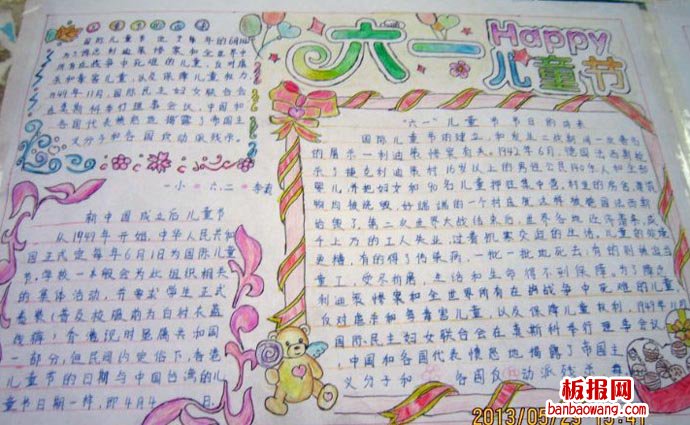 六一
Happy
儿童节
国际儿童节是为了每年的6月
为了悼念利迪策惨案和全世界所
有在战争中死难的儿童,反对虐
杀和毒害儿童,以及保障儿童权力,
1949年11月,国际民主妇女联合会在
莫斯科举行理事会议,中国和
各国代表愤怒地揭露了帝国主
义分子和各国反动派残杀、
一小 六、二
新中国成立后儿童节
从1949年开始,中华人民共和
国正式定每年6月1日为国际儿童
节,学校一般会为此组织相关
的集体活动,并要求学生正式
着装(普及校服前为白衬衣蓝
或裤)香港现时虽属共和国
一部分,但民间约定俗下,香港
儿童节的日期与中国台湾的儿
童节日期一样,即4月4日
“六一”儿童节节日的由来
国际儿童节的建立,和发生二战期间一次著名
的屠杀一利迪策惨案有关。1942年6月,德国法西斯枪
杀了捷克利迪策村16岁以上的男性公民140余人和全部
婴儿,并把妇女和90名儿童押往集中营。村里的房舍、建筑
物均被烧毁,好端端的一个村庄就这样被德国法西斯
给毁了。第二次世界大战结束后,世界各地经济萧条,成
千上万的工人失业,过着饥寒交迫的生活。儿童的处境
更糟,有的得了传染病,一批一批地死去;有的则被迫当
童工,受尽折磨,生活和生命得不到保障。为了悼念
利迪策惨案和全世界所有在战争中死难的儿童,
反对虐杀和毒害儿童,以及保障儿童权利,1949年11月
国际民主妇女联合会在莫斯科举行理事会议,
中国和各国代表愤怒地揭露了帝国主
义分子和各国反动派残杀、
板报网
banbaowang.com
2013/05/29 15:41